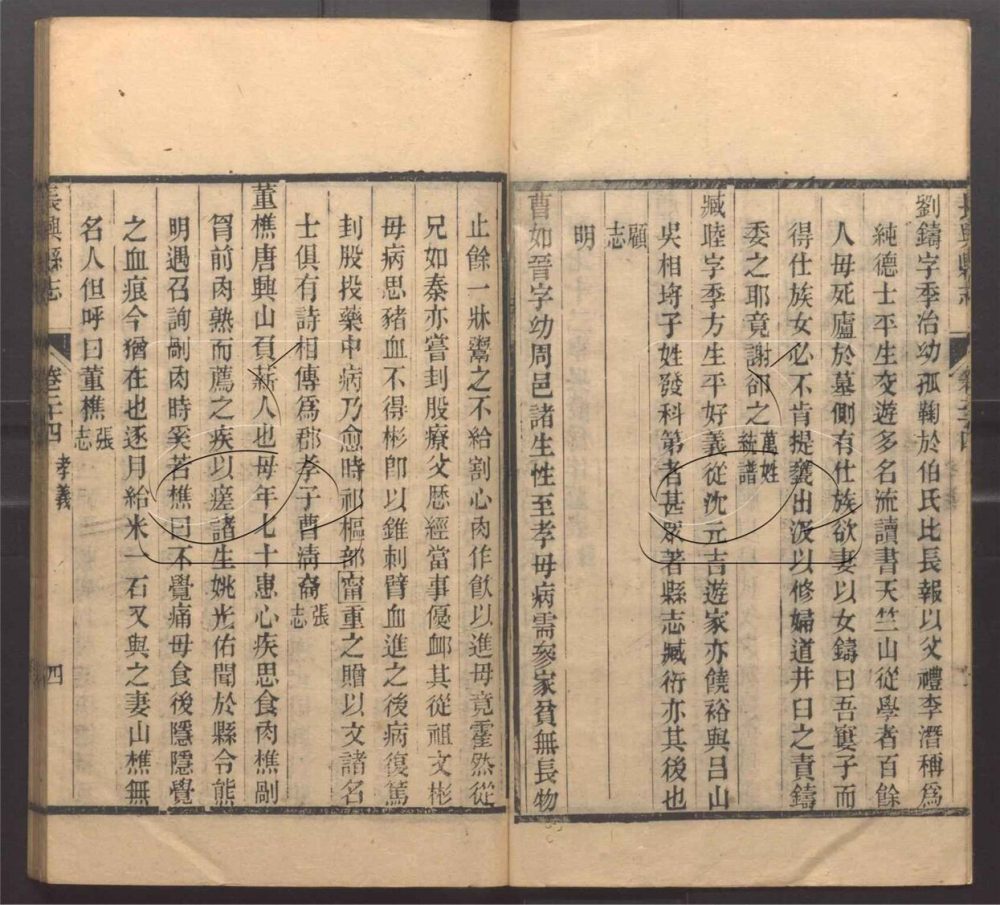 劉鑄字季冶幼孤鞠於伯氏比長報以父禮李潛稱爲
純德士平生交遊多名流讀書天竺山從學者百餘
人母死廬於墓側有仕族欲妻以女鑄曰吾寠子而
得仕族女必不肯提甕出汲以修婦道井臼之責鑄
委之耶竟謝卻之萬姓統譜
臧陸字季方生平好義從沈元吉遊家亦饒裕與呂山
吳相埓子姓發科第者甚眾著縣志臧衎亦其後也
顧志
明
曹如晉字幼周邑諸生性至孝母病需參家貧無長物
止餘一牀鬻之不給割心肉作飲以進母竟霍然從
兄如秦亦嘗刲股療父歷經當事優卹其從祖文彬
母病思豬血不得彬卽以錐刺臂血進之後病復篤
刲股投藥中病乃愈時祁樞部甯重之贈以文諸名
士俱有詩相傳爲郡孝子曹淸裔張志
董樵唐興山負薪人也母年七十患心疾思食肉樵剮
胷前肉熟而薦之疾以瘥諸生姚光佑聞於縣令熊
明遇召詢剮肉時奚若樵曰不覺痛母食後隱隱覺
之血痕今猶在也逐月給米一石又與之妻山樵無
名人但呼曰董樵張志
長興縣志
卷二十四 孝義
四